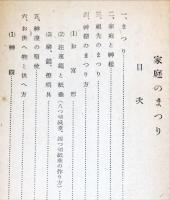 家庭のまつり
目次
一、まつり
二、家庭と神様
三、祖先のまつり
四、神棚のまつり方
(1) お宮形
(2) 注連縄と紙垂(八つ切紙垂、四つ切紙垂の作り方)
(3) 榊、鏡、燈明具
五、神座の順使
六、お供へ物と供へ方
(1) 神饌